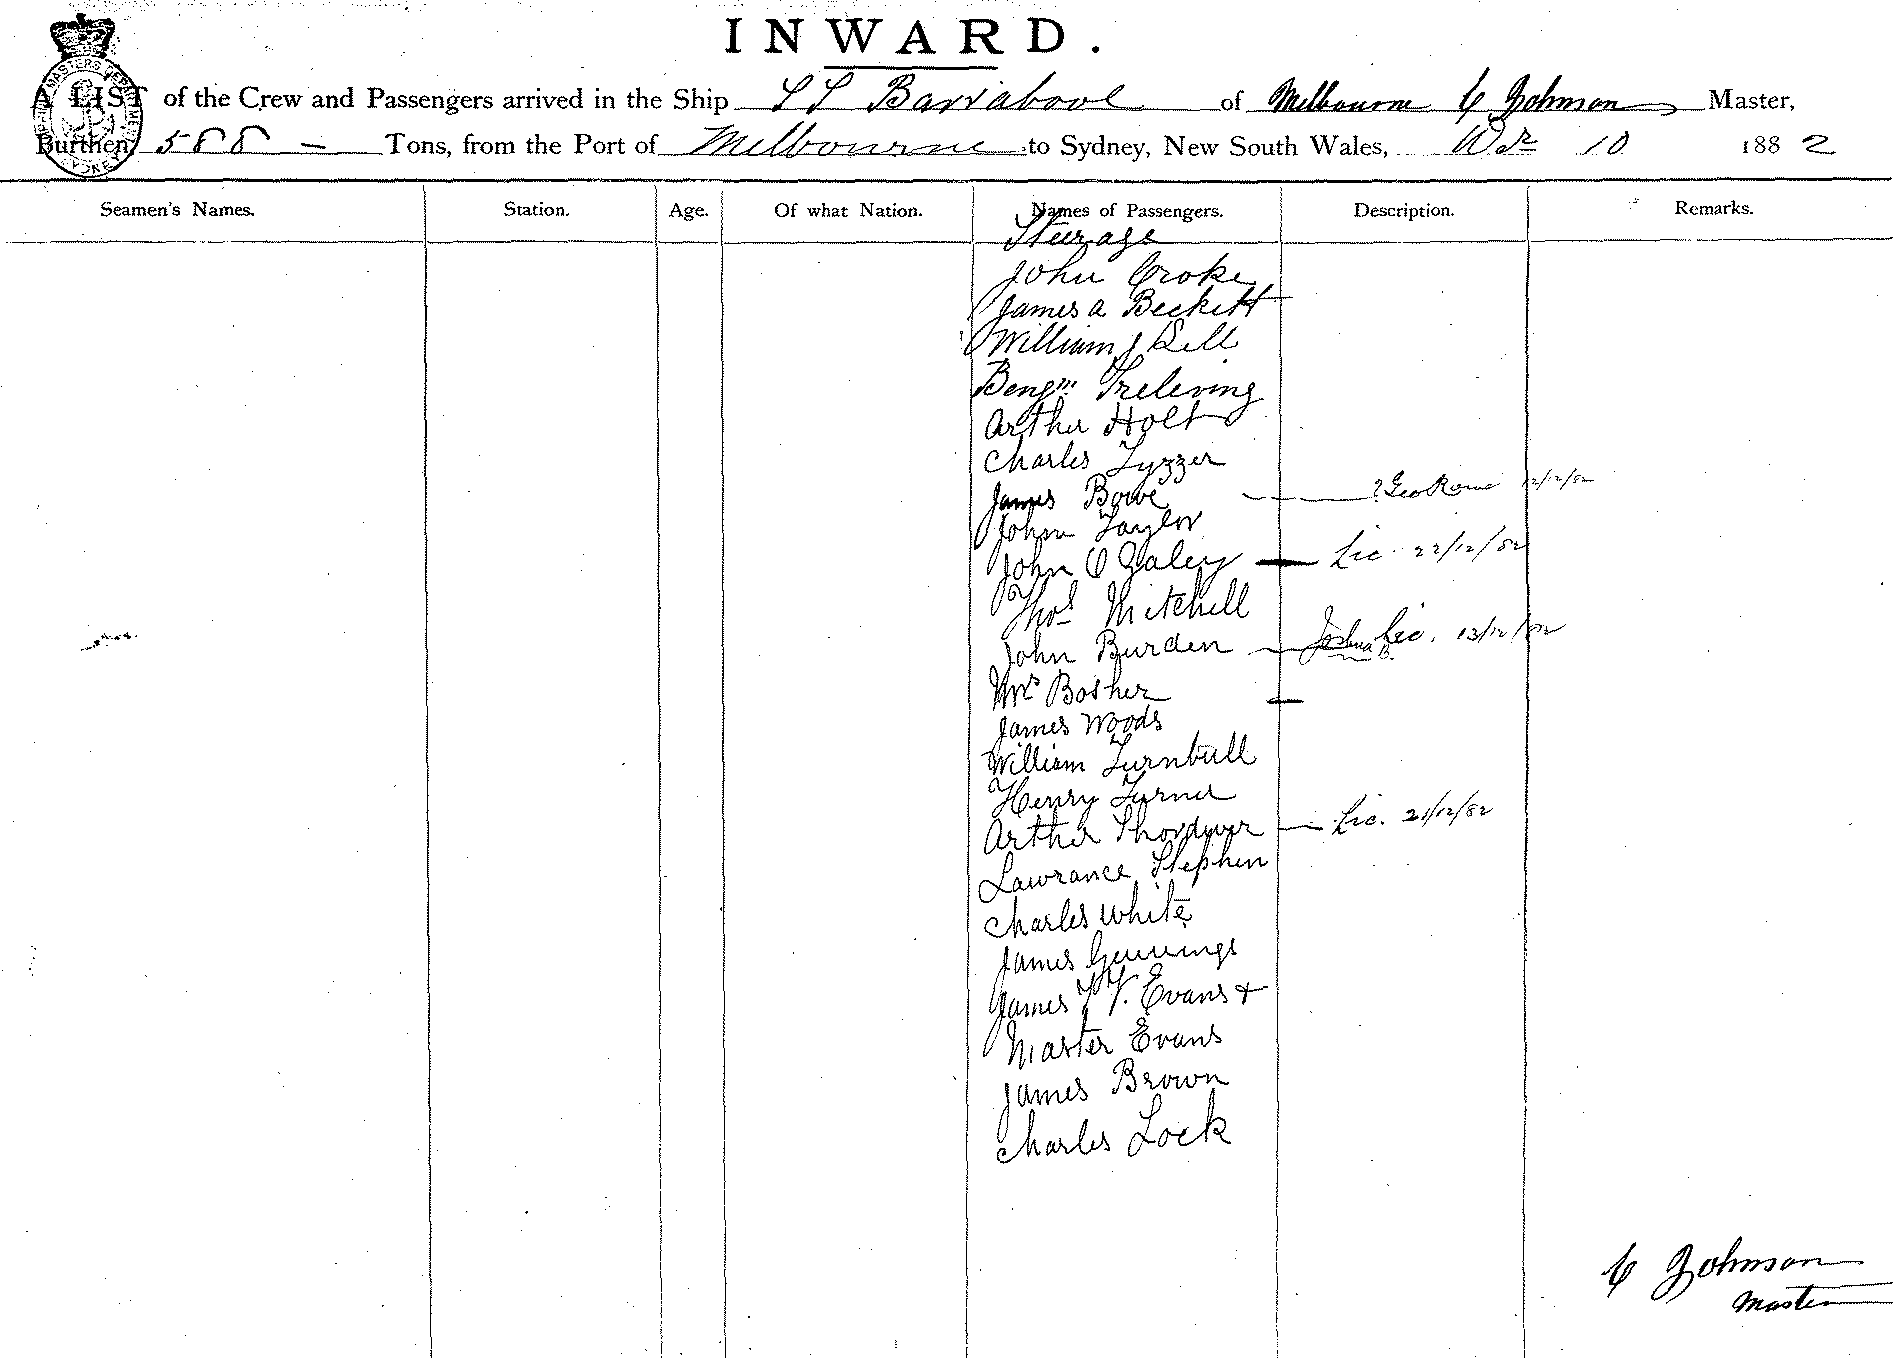 INWARD.
A LIST of the Crew and Passengers arrived in the Ship SS Barrabool of Melbourne C Johnson Master,
Burthen 588 — Tons, from the Port of Melbourne to Sydney, New South Wales, 10 1882
Seamen's Names. Station. Age. Of what Nation. Names of Passengers. Description. Remarks.
Steerage
John Croke
James A Beckett
William J Bell
Bengm Treleving
Arther Holt
Charles Tyzzer
James Bowe — ? Geo Rowe 12/12/82
John Taylor
John O Galey — Lic. 22/12/82
Thos Mitchell
John Burden — Joshua B. Lic. 13/12/82
Mrs Bosher —
James Woods
William Turnbull
Henry Turner
Arther — Lic. 21/12/82
Lawrance Stephen
Charles White
James Gennings
James T V. Evans +
Master Evans
James Brown
Charles Lock
C Johnson
Master